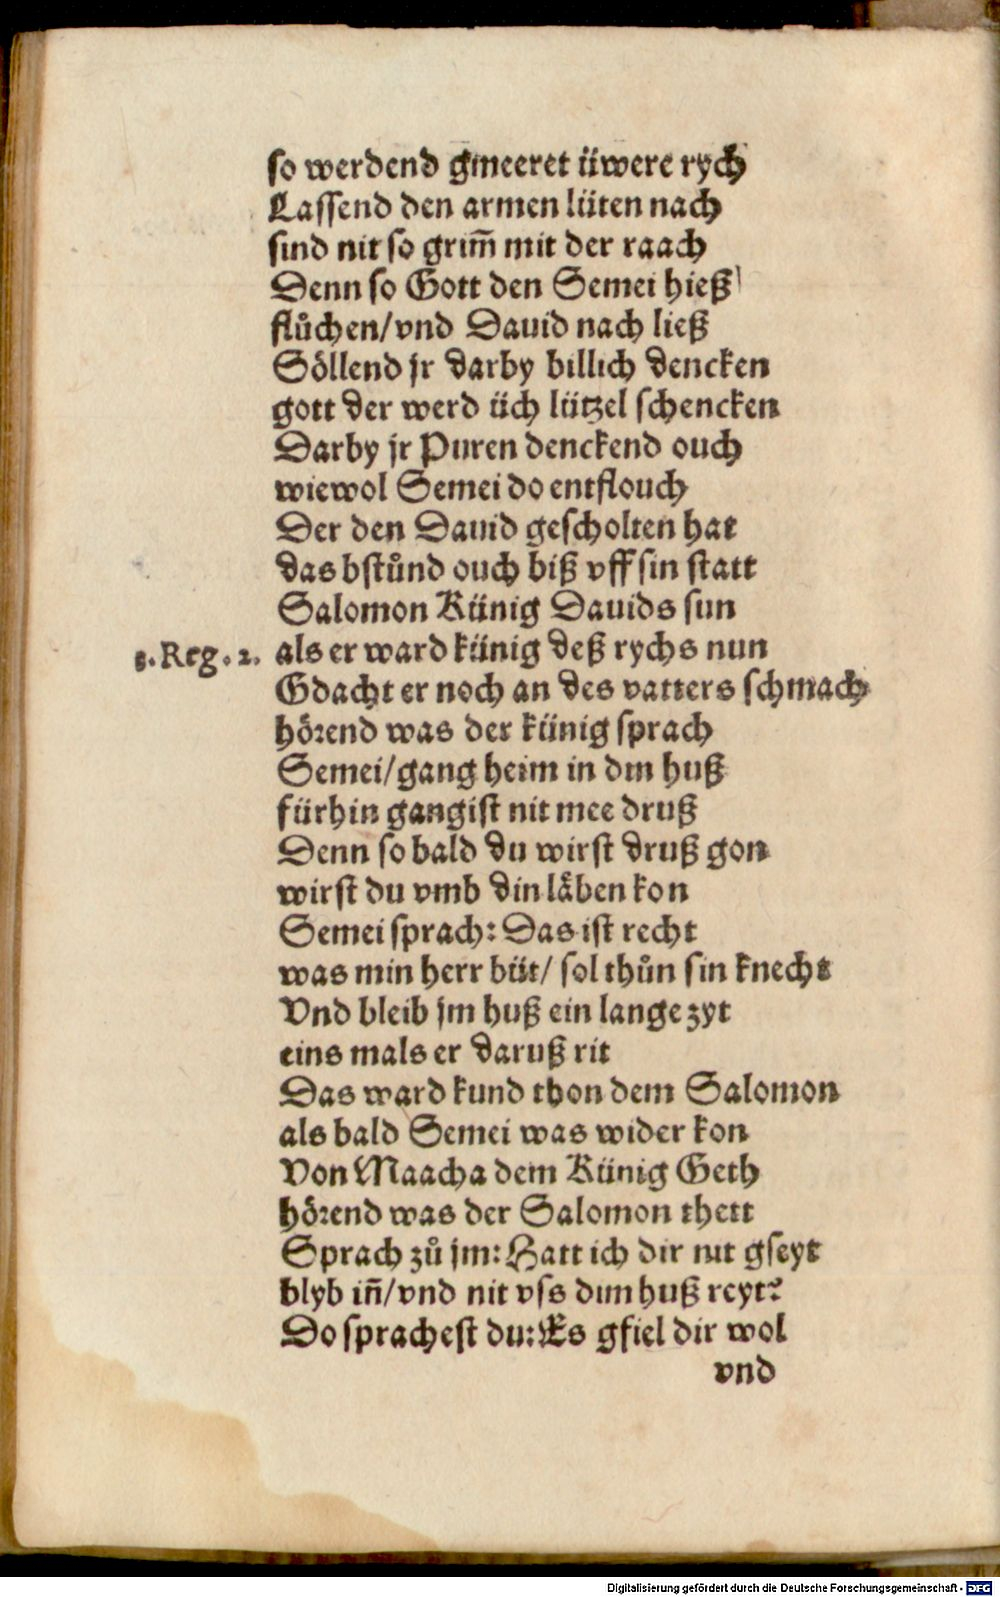 so werdend gmeeret üwere rych
Lassend den armen lüten nach
sind nit so grim̄ mit der raach
Denn so Gott den Semei hieß
flůchen/vnd Dauid nach ließ
Söllend jr darby billich dencken
gott der werd üch lützel schencken
Darby jr Puren denckend ouch
wiewol Semei do entflouch
Der den Dauid gescholten hat
das bstůnd ouch biß vff sin statt
Salomon Künig Dauids sun
3. Reg. 2. als er ward künig deß rychs nun
Gdacht er noch an des vatters schmach
hörend was der künig sprach
Semei/gang heim in din huß
fürhin gangist nit mee druß
Denn so bald du wirst druß gon
wirst du vmb din låben kon
Semei sprach: Das ist recht
was min herr büt/ sol thůn sin knecht
Vnd bleib jm huß ein lange zyt
eins mals er daruß rit
Das ward kund thon dem Salomon
als bald Semei was wider kon
Von Maacha dem Künig Geth
hörend was der Salomon thett
Sprach zů jm: Hatt ich dir nit gseyt
blyb in̄/vnd nit vss dim huß reyt?
Do sprachest du: Es gfiel dir wol
vnd
Digitalisierung gefördert durch die Deutsche Forschungsgemeinschaft - DFG